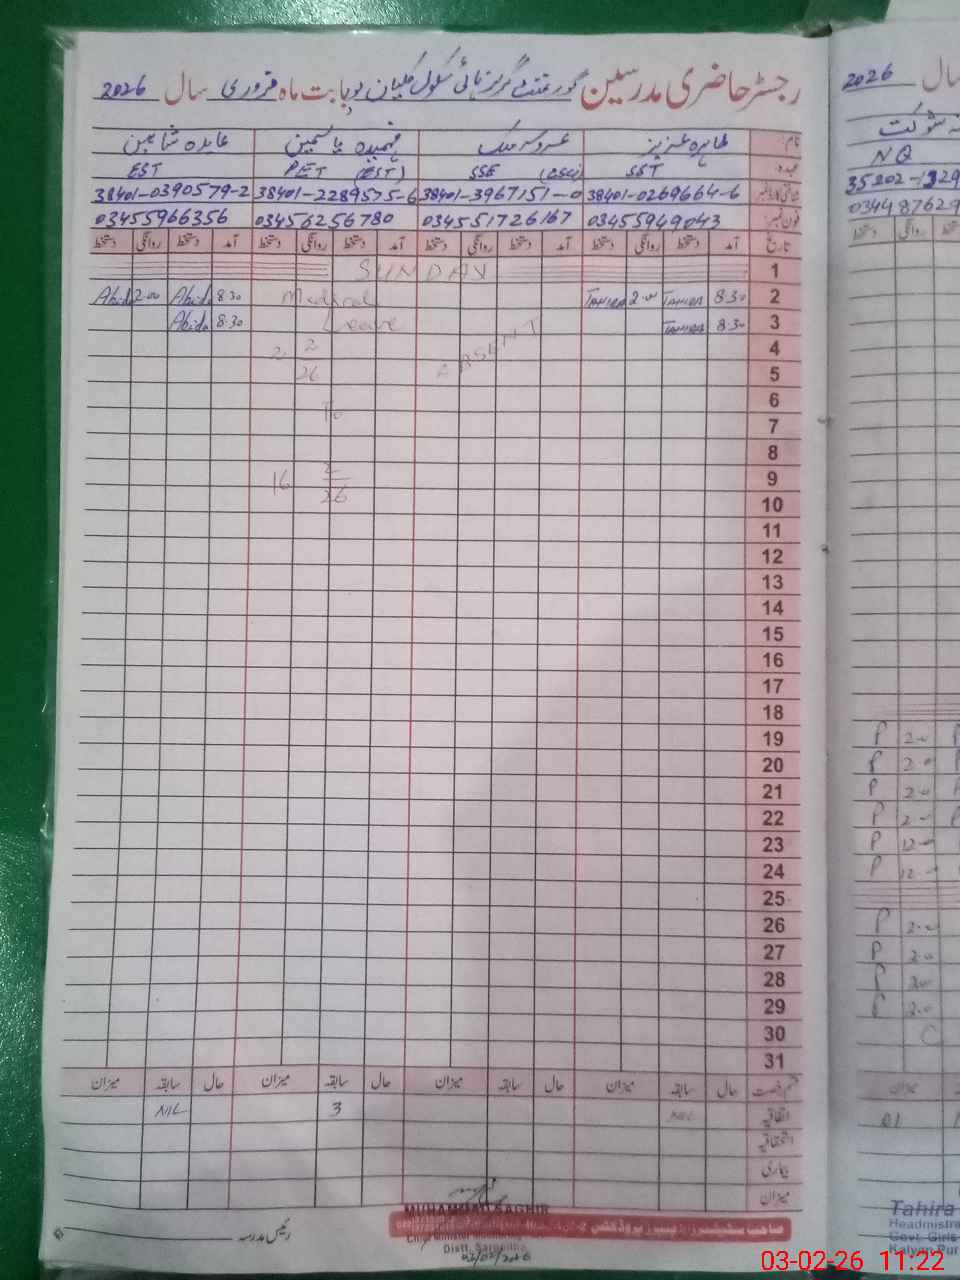 رجسٹر حاضری مدرسین گورنمنٹ گرلز ہائی سکول کلیان پور بابت ماہ فروری سال 2026
نام: طاہرہ عزیز عابدہ شاہین
عہدہ: SST SSE PET (EST) EST
38401-0269664-6 38401-3967151-0 38401-2289575-6 38401-0390579-2
فون نمبر: 03455949043 034551726167 03456256780 03455966356
تاریخ آمد دستخط روانگی دستخط آمد دستخط روانگی دستخط آمد دستخط روانگی دستخط آمد دستخط روانگی دستخط
1 SUNDAY
2 8:30 TAHIRA 2:00 TAHIRA Medical 8:30 Abida 2:00 Abida
3 8:30 TAHIRA ABSENT Leave 8:30 Abida
4 2 2
5 26
6 To
7
8
9 16 2
10 26
11
12
13
14
15
16
17
18
19
20
21
22
23
24
25
26
27
28
29
30
31
قسم رخصت حال سابقہ میزان حال سابقہ میزان حال سابقہ میزان حال سابقہ میزان
اتفاقیہ NIL 3 NIL
استحقاقیہ
بیماری
میزان
MUHAMMAD SAGHIR
Distt. Sargodha
رئیس مدرسہ
سال 2026
شوکت
NQ
35202-1329
034487629
دستخط روانگی دستخط
P 2-00 P
P 2-00 P
P 2-00 P
P 2-00 P
P 12-00
P 12-00
P 2-00
P 2-00
P 2-00
P 2-00
C
میزان
01
Tahira
Headmistre
Govt. Girls
Kalyan Pur
03-02-26 11:22